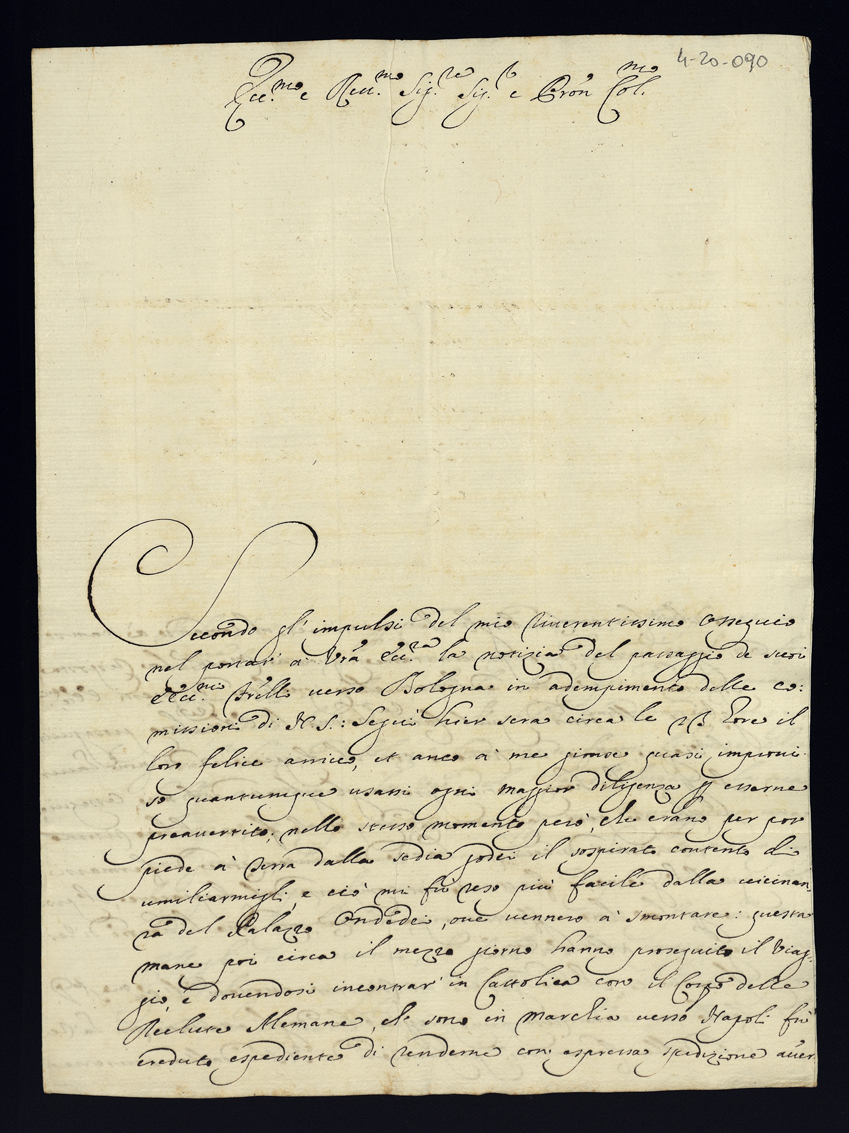 4-20-090
Ecc.mo e Reu.mo Sig.re Sig.r e Pron Col.mo
Secondo gl'impulsi del mio riuerentissimo ossequio
nel portar' à Vra Ecc.za la notizia del passaggio de suoi
Ecc.mi Frelli uerso Bologna in adempimento delle co:
missioni di N. S.: Seguì hier sera circa le 23 hore il
loro felice arriuo, et anco à me giunse quasi improui
so quantunque usassi ogni maggior diligenza p esserne
preauertito; nello stesso momento però, che erano per por
piede à terra dalla sedia godei il sospirato contento di
umiliarmigli, e ciò mi fù reso più facile dalla uicinan
za del Palazzo Ondedei, oue uennero à smontare: questa
mane poi circa il mezzo giorno hanno proseguito il Viag:
gio, e douendosi incontrar' in Cattolica con il Corpo delle
Reclute Alemane, ch' sono in marchia uerso Napoli fù
creduto espediente di renderne con espressa spedizione auer